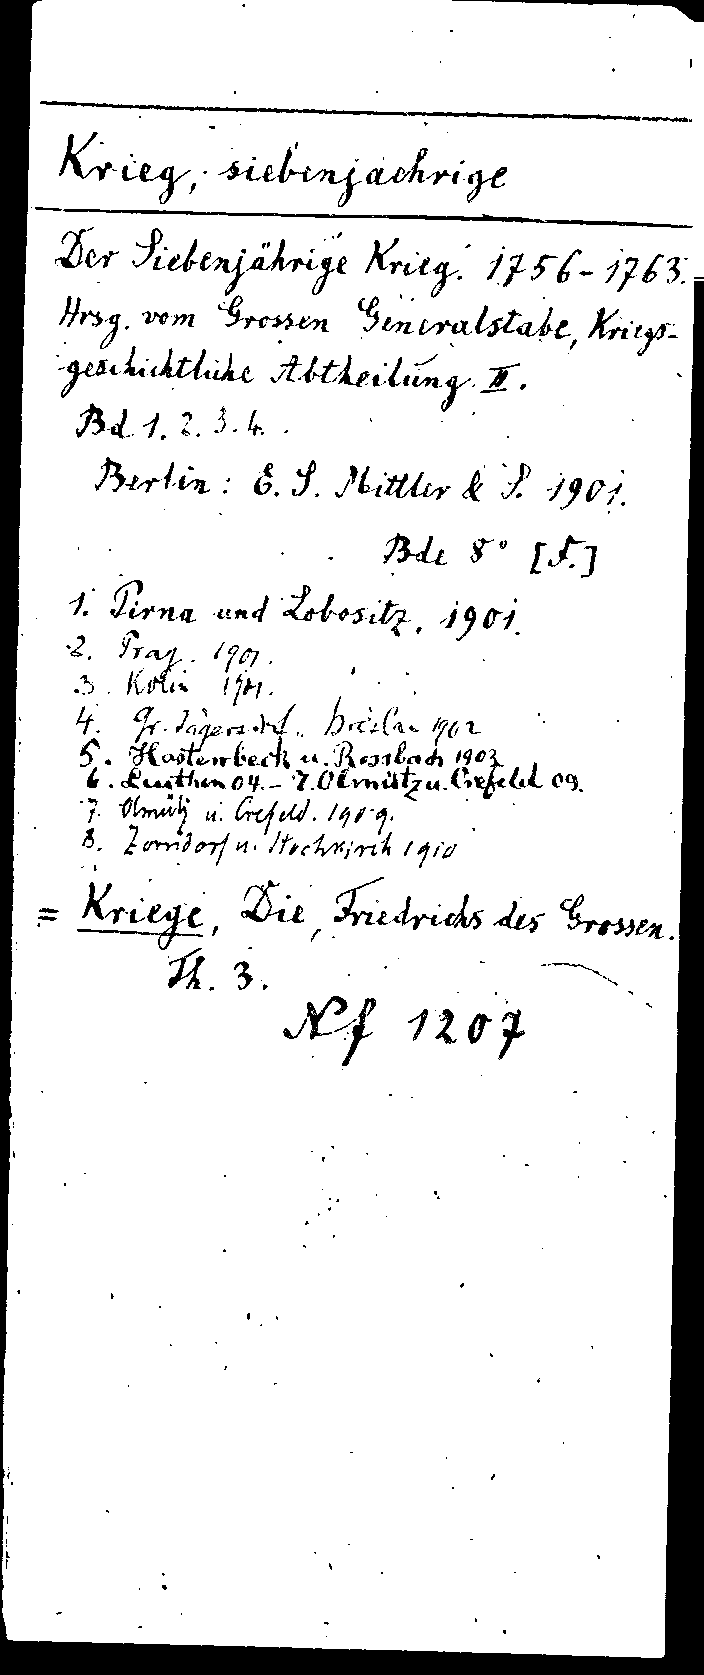 Krieg, siebenjaehrige
Der Siebenjährige Krieg. 1756-1763.
Hrsg. vom Grossen Generalstabe, Kriegs-
geschichtliche Abtheilung II.
Bd 1. 2. 3. 4.
Berlin: E. S. Mittler & S. 1901.
Bde 8° [F.]
1. Pirna und Lobositz. 1901.
2. Prag. 1901.
3. Kolin 1901.
4. Gr. Jägersdorf u. Breslau 1902
5. Hastenbeck u. Rossbach 1903
6. Leuthen 04. – 7. Olmütz u. Crefeld 09.
7. Olmütz u. Crefeld. 1909.
8. Zorndorf u. Hochkirch 1910
= Kriege, Die, Friedrichs des Grossen.
Th. 3.
Nf 1207